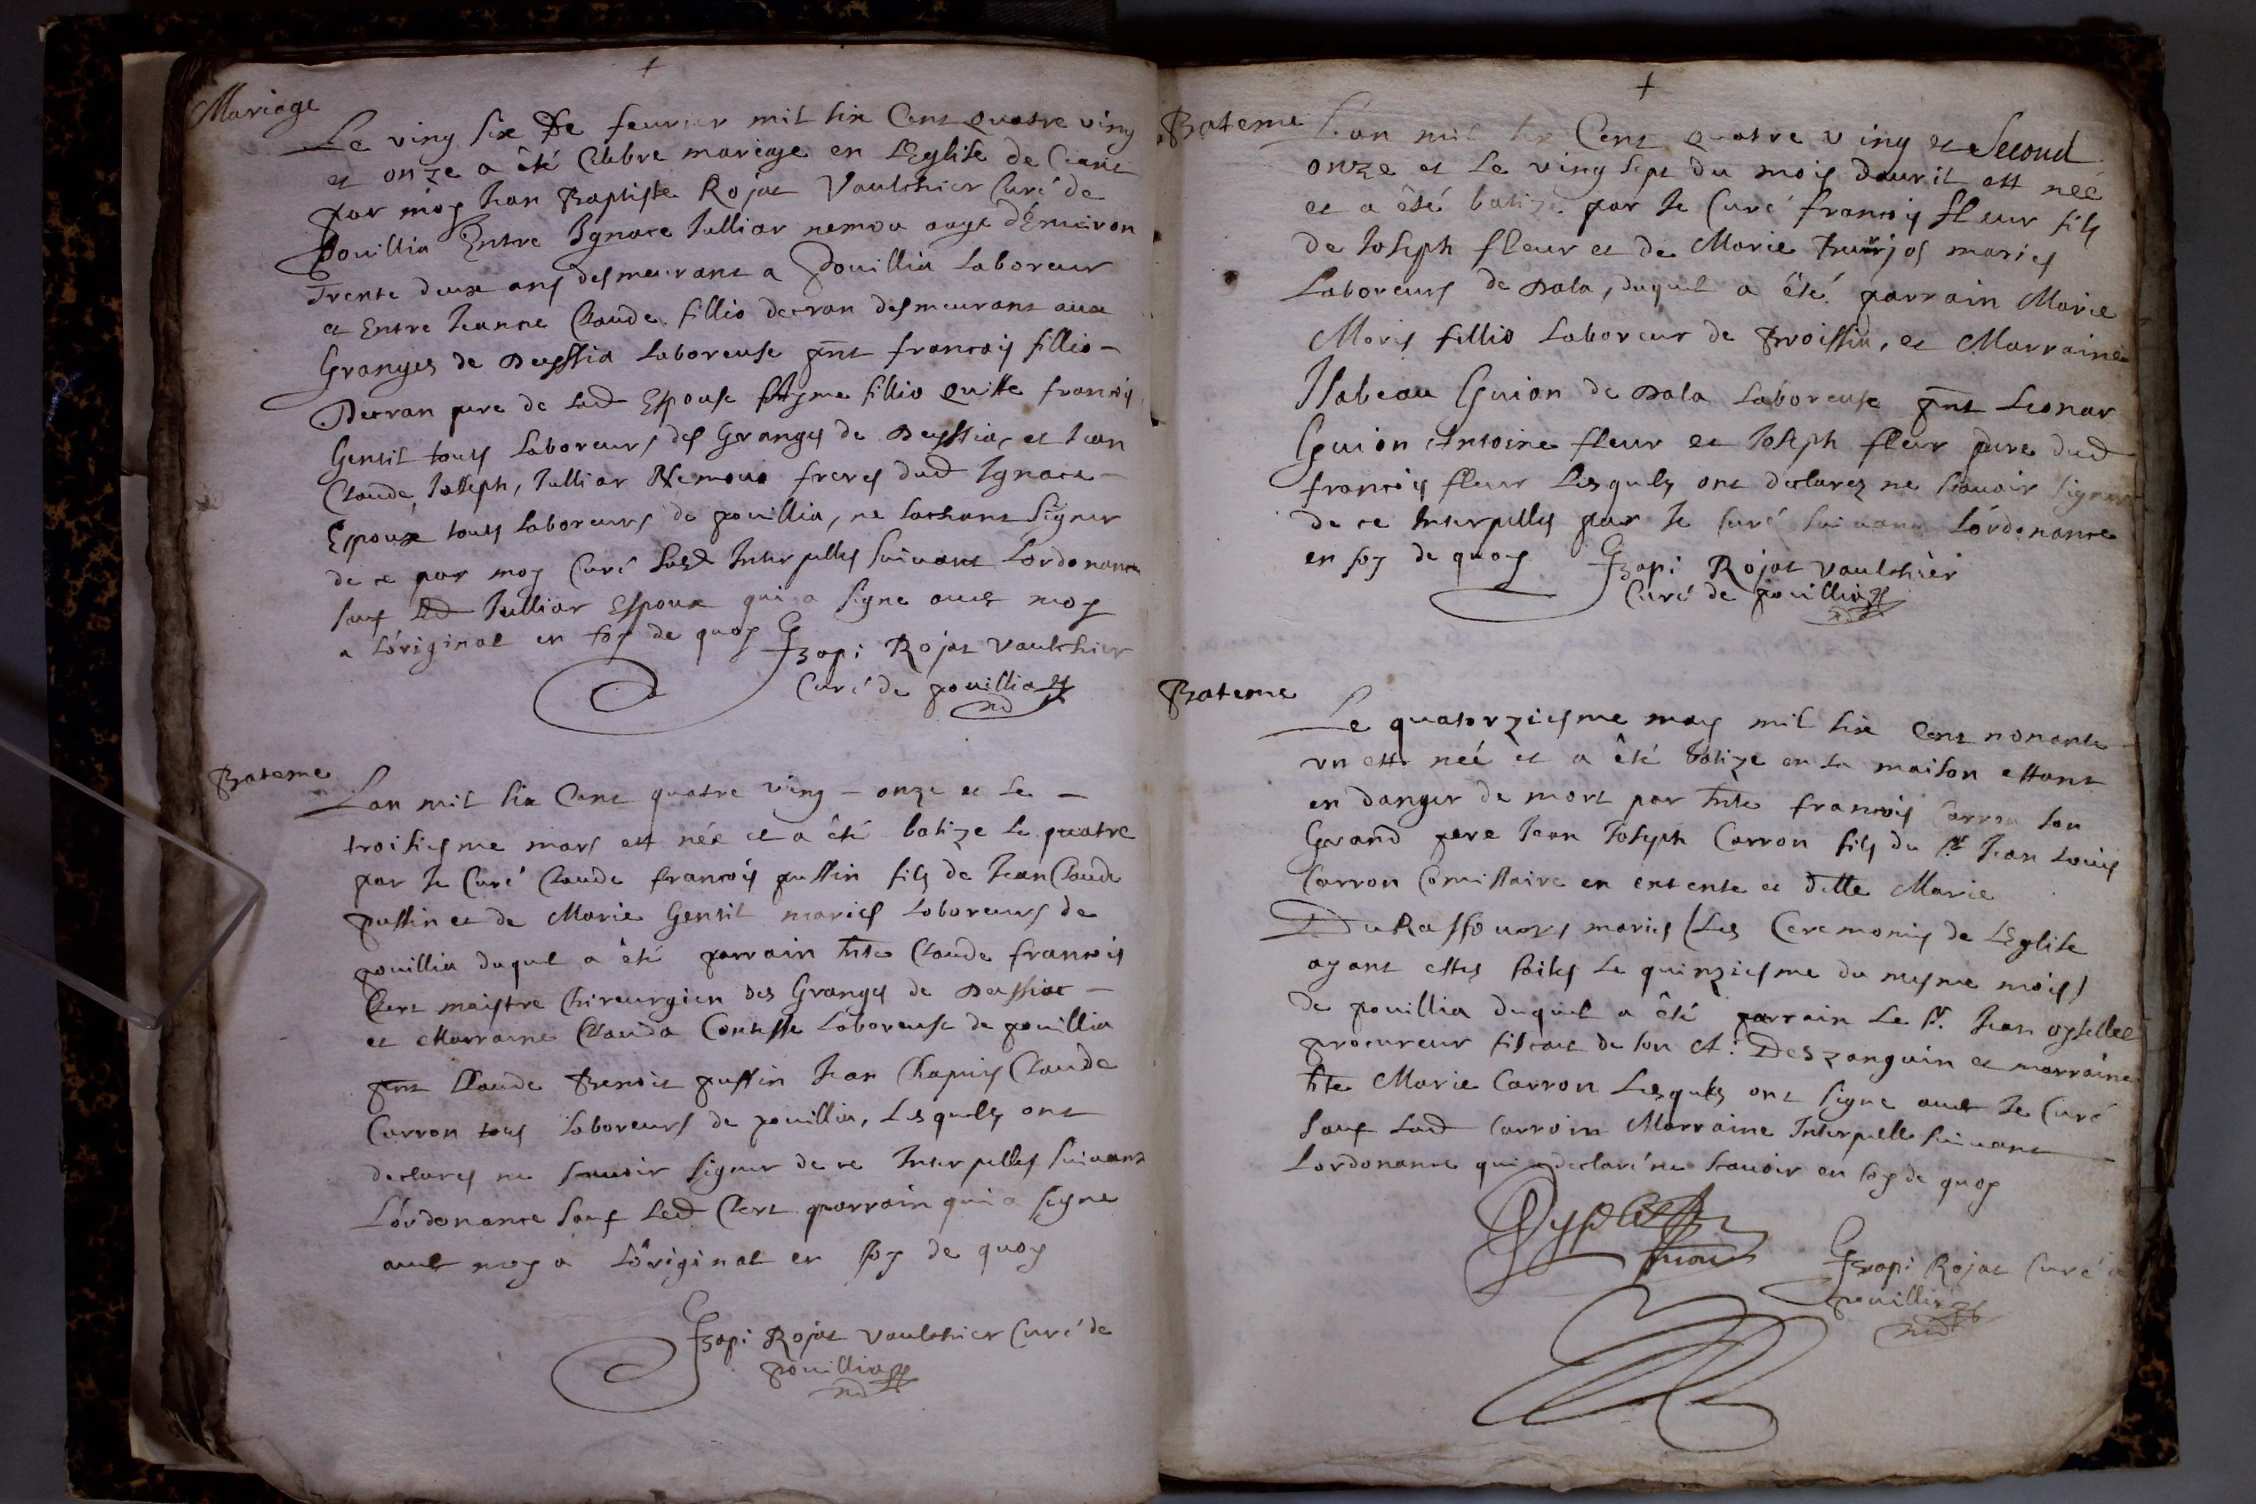 +
Mariage
Le ving six De feurier mil six Cent quatre ving
et onze a êté Celebre mariage en LEglise de Ceans
par moy Jean Baptiste Rojat Vaulchier Curé de
pouillia Entre Ignace Julliar nemou aagé dEnuiron
Trente deux ans desmeurant a pouillia Laboreur
et Entre Jeanne Claude fillio decran desmeurant aux
Granges de Dessia Laboreuse pnt francois fillio
Decran pere de lad Espouse fillio francois
Gentil touts Laboreurs des Granges de Dessia, et Jean
Claude, Joseph, Julliar Nemous freres dud Ignace
Espoux touts laboreurs de pouillia, ne sachant signer
de ce par moy Curé susd Interpelles suiuant Lordonance
sauf led Julliar Espoux qui a signe auec moy
a Lóriginal en foy de quoy
Rojat Vaulchier
Curé de pouillia
Bateme
Lan mil six Cent quatre ving - onze et le -
troisiesme mars est née et a êté batize le quatre
par Je Curé Claude francois pussin fils de Jean Claude
pussin et de Marie Gentil maries Laboreurs de
pouillia duquel a êté parrain Claude francois
Clerc maistre Chireurgien des Granges de Dessiat -
et Marraine Clauda Contesse Laboreuse de pouillia
pnt Claude Benoit pussin Jean Chapuis Claude
Carron tous Laboreurs de pouillia, Lesquels ont
declares ne scauoir signer de ce Interpelles suiuant
Lórdonance sauf Led Clerc parrain qui a signe
auec moy a Lóriginal en foy de quoy
Rojat Vaulchier Curé de
pouillia
+
Bateme
Lan mil six Cent quatre ving et Second
onze et le ving sept du mois dauril est née
et a êté batize par Je Curé francois fleur fils
de Joseph fleur et de Marie maries
Laboreurs de Dala, duquel a êté parrain Marie
Moris fillio Laboreur de Broissia, et Marraine
Isabeau Guion de Dala Laboreuse pnt Leonar
Guion Antoine fleur et Joseph fleur pere dud
francois fleur Lesquels ont declarez ne scauoir signer
de ce Interpelles par Je Curé suiuant Lórdonance
en foy de quoy
Rojat Vaulchier
Curé de pouillia
Bateme
Le quatorziesme may mil six Cent nonante
vn est née et a êté batize en la maison estant
en danger de mort par francois Carron son
Grand pere Jean Joseph Carron fils du Sr Jean Louis
Carron Comissaire en extente et dlle Marie
Du maries (Les Ceremonies de LEglise
ayant estes faites le quinziesme du mesme mois)
de pouillia duquel a êté parrain Le Sr. Jean oyselle
procureur fiscal de son A: et marraine
Marie Carron Lesquels ont signe auec Je Curé
sauf Lad Carroin Marraine Interpelle suiuant
Lordonance qui a declaré ne scauoir en foy de quoy
Rojat Curé
pouillia